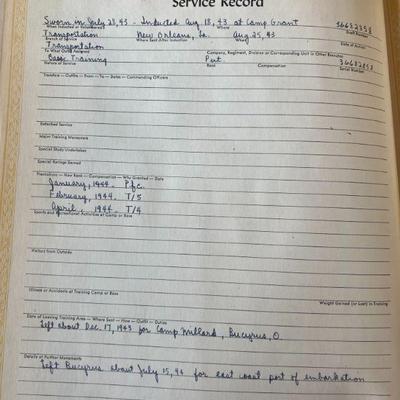 Service Record
Sworn in July 28, 43 - Inducted Aug. 18, 43 at Camp Grant 36682858
When Inducted or Volunteered? Where Draft Number
Transportation New Orleans, La. Aug 25, 43
Branch of Service Where Sent After Induction When? Date of Action
Transportation
To What Outfit Assigned Company, Regiment, Division or Corresponding Unit in Other Branches
Basic Training Pvt. 36682858
Nature of Service Rank Compensation Serial Number
Transfers — Outfits — From — To — Dates — Commanding Officers
Detached Service
Major Training Maneuvers
Special Study Undertaken
Special Ratings Earned
Promotions — New Rank — Compensation — Why Granted — Date
January, 1944 - Pfc.
February, 1944 - T/5
April - 1944 - T/4
Sports and Recreational Activities at Camp or Base
Visitors from Outside
Illness or Accidents at Training Camp or Base Weight Gained (or Lost) in Training
Date of Leaving Training Area — Where Sent — How — Outfit — Duties
Left about Dec. 17, 1943 for Camp Millard, Bucyrus, O.
Details of Further Movements
Left Bucyrus about July 15, 44 for east coast port of embarkation